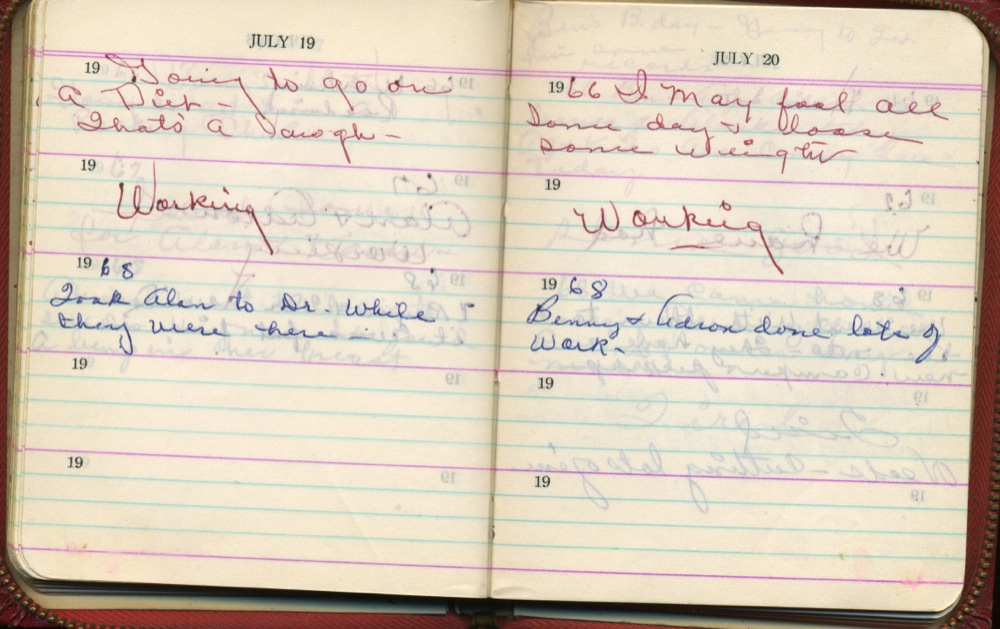 JULY 19
19 Going to go on
a Diet -
Thats a Laugh -
19
Working
1968
Took Alan to Dr. While
they were here -
19
19
JULY 20
1966 I May fool all
Some day & Loose
some weight
19
Working
1968
Benny & Aaron done lots of
Work -
19
19